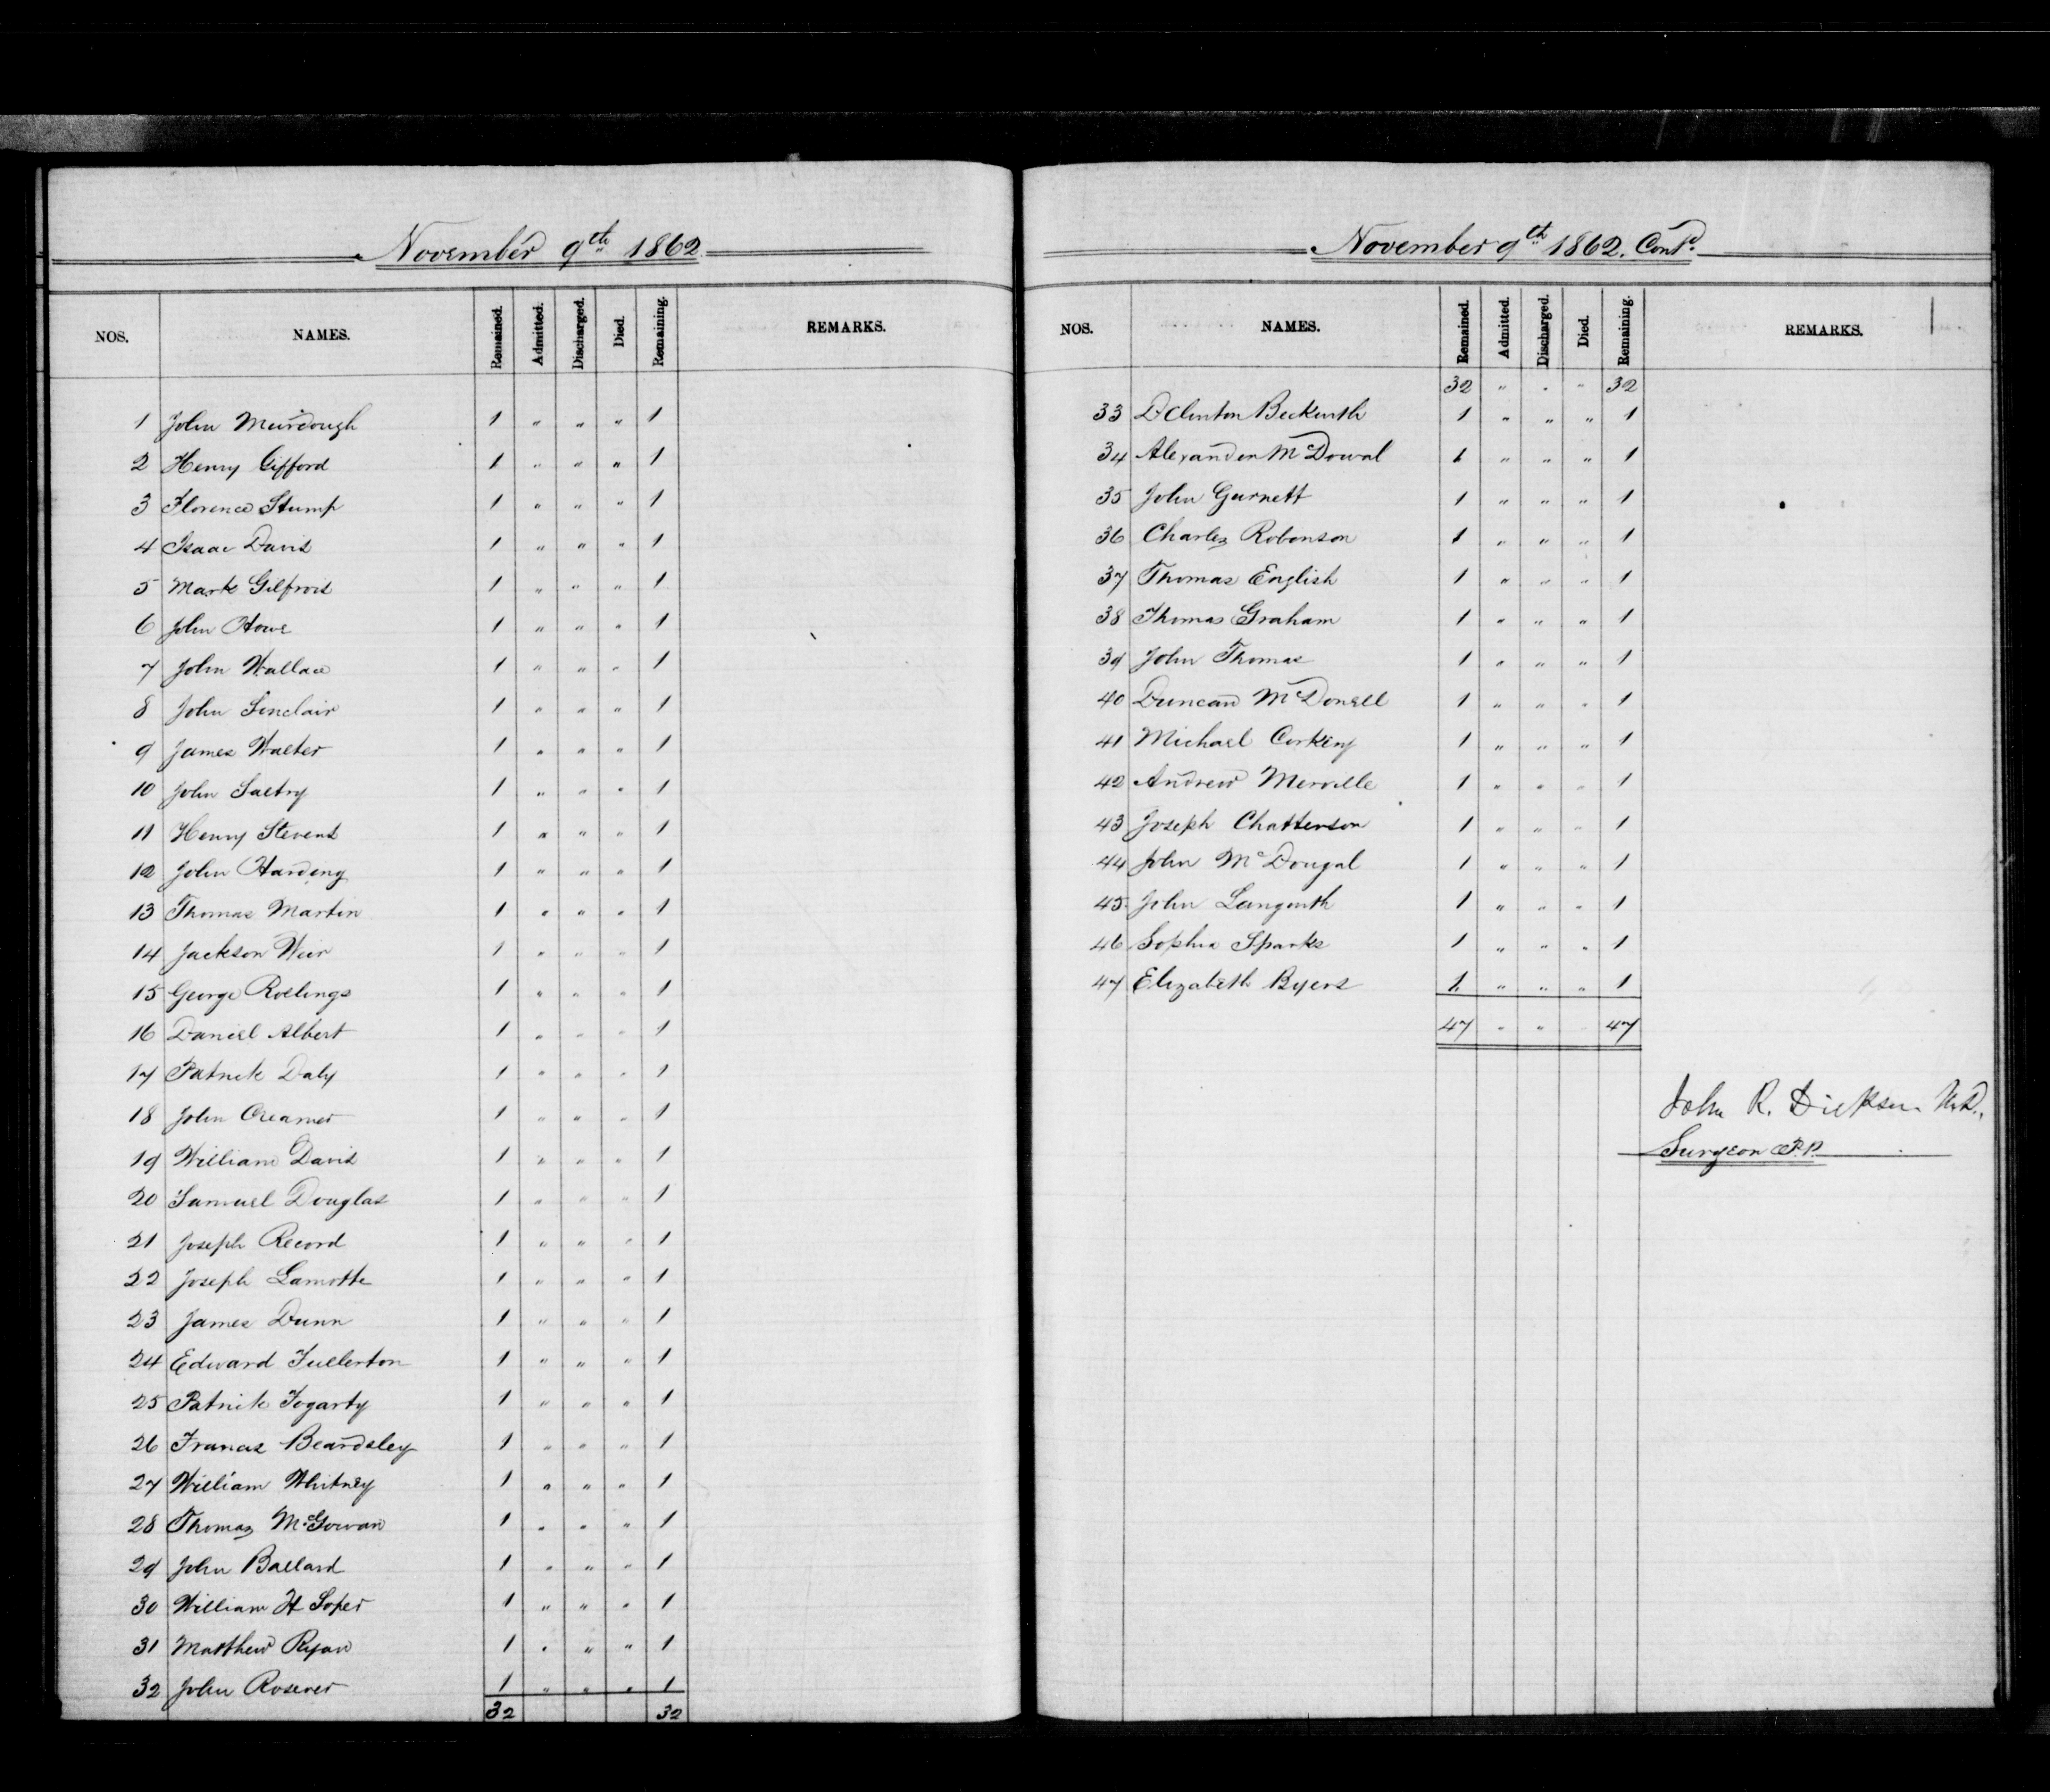 November 9th 1862
NOS. NAMES. Remained. Admitted. Discharged. Died. Remaining. REMARKS.
1 John Murdough 1 " " " 1
2 Henry Gifford 1 " " " 1
3 Florence Stump 1 " " " 1
4 Isaac Davis 1 " " " 1
5 Mark Gilfrois 1 " " " 1
6 John Howe 1 " " " 1
7 John Wallace 1 " " " 1
8 John Sinclair 1 " " " 1
9 James Walter 1 " " " 1
10 John Saltry 1 " " " 1
11 Henry Stevens 1 " " " 1
12 John Harding 1 " " " 1
13 Thomas Martin 1 " " " 1
14 Jackson Weir 1 " " " 1
15 George Rollings 1 " " " 1
16 Daniel Albert 1 " " " 1
17 Patrick Daly 1 " " " 1
18 John Creamer 1 " " " 1
19 William Davis 1 " " " 1
20 Samuel Douglas 1 " " " 1
21 Joseph Record 1 " " " 1
22 Joseph Lamotte 1 " " " 1
23 James Dunn 1 " " " 1
24 Edward Fullerton 1 " " " 1
25 Patrick Fogarty 1 " " " 1
26 Francis Beardsley 1 " " " 1
27 William Whitney 1 " " " 1
28 Thomas McGowan 1 " " " 1
29 John Ballard 1 " " " 1
30 William H Soper 1 " " " 1
31 Matthew Ryan 1 " " " 1
32 John Rosever 1 " " " 1
32 32
November 9th 1862. Contd.
NOS. NAMES. Remained. Admitted. Discharged. Died. Remaining. REMARKS.
32 " " " 32
33 DClinton Beckwith 1 " " " 1
34 Alexander McDowal 1 " " " 1
35 John Garnett 1 " " " 1
36 Charles Robonson 1 " " " 1
37 Thomas English 1 " " " 1
38 Thomas Graham 1 " " " 1
39 John Thomas 1 " " " 1
40 Duncan McDonell 1 " " " 1
41 Michael Corking 1 " " " 1
42 Andrew Merville 1 " " " 1
43 Joseph Chatterson 1 " " " 1
44 John McDougal 1 " " " 1
45 John Langwith 1 " " " 1
46 Sophia Sparks 1 " " " 1
47 Elizabeth Byers 1 " " " 1
47 " " 47
John R. Dickson M.D.,
Surgeon P.P.